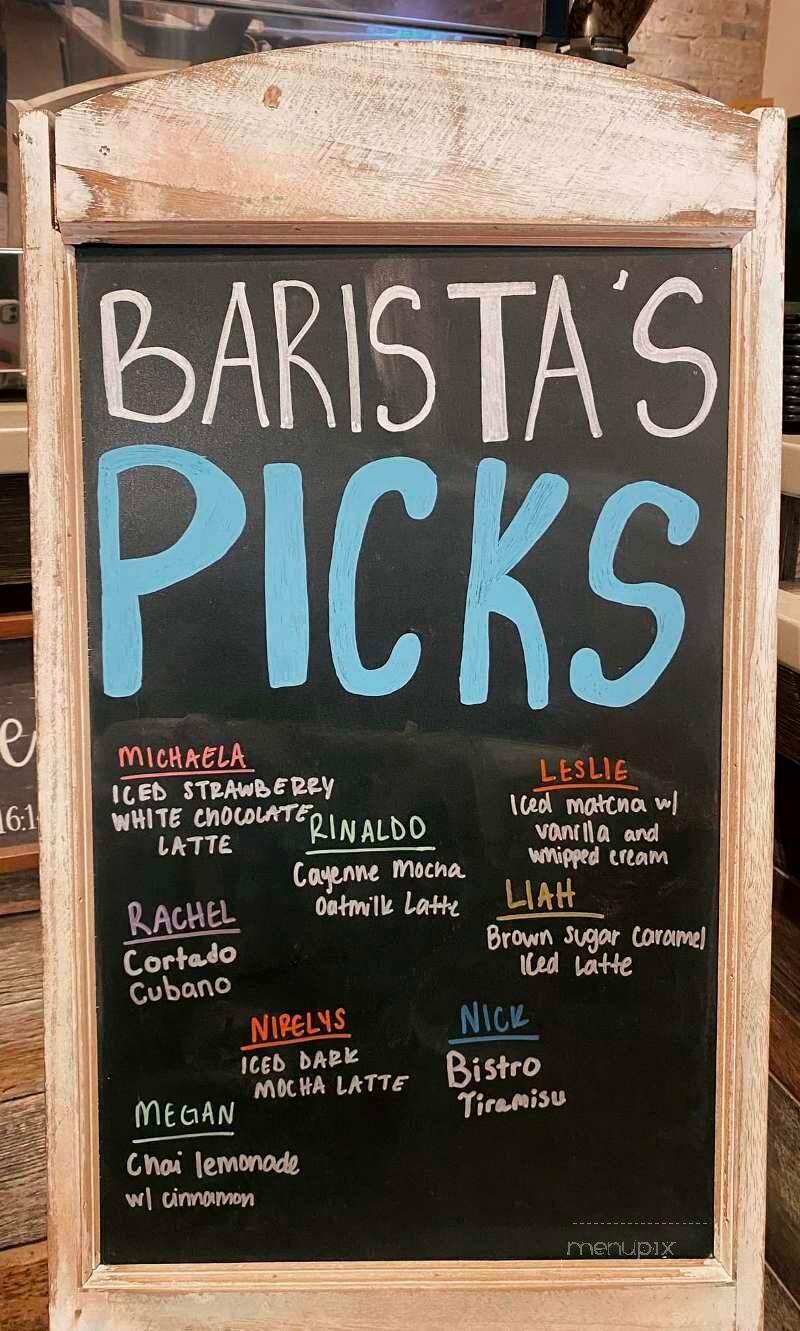 BARISTA'S
PICKS
MICHAELA
ICED STRAWBERRY
WHITE CHOCOLATE
LATTE
LESLIE
Iced matcha w/
vanilla and
whipped cream
RINALDO
Cayenne Mocha
Oatmilk Latte
LIAH
Brown Sugar Caramel
Iced Latte
RACHEL
Cortado
Cubano
NIRELYS
ICED DARK
MOCHA LATTE
NICK
Bistro
Tiramisu
MEGAN
Chai lemonade
w/ cinnamon
menupix
e
16:1